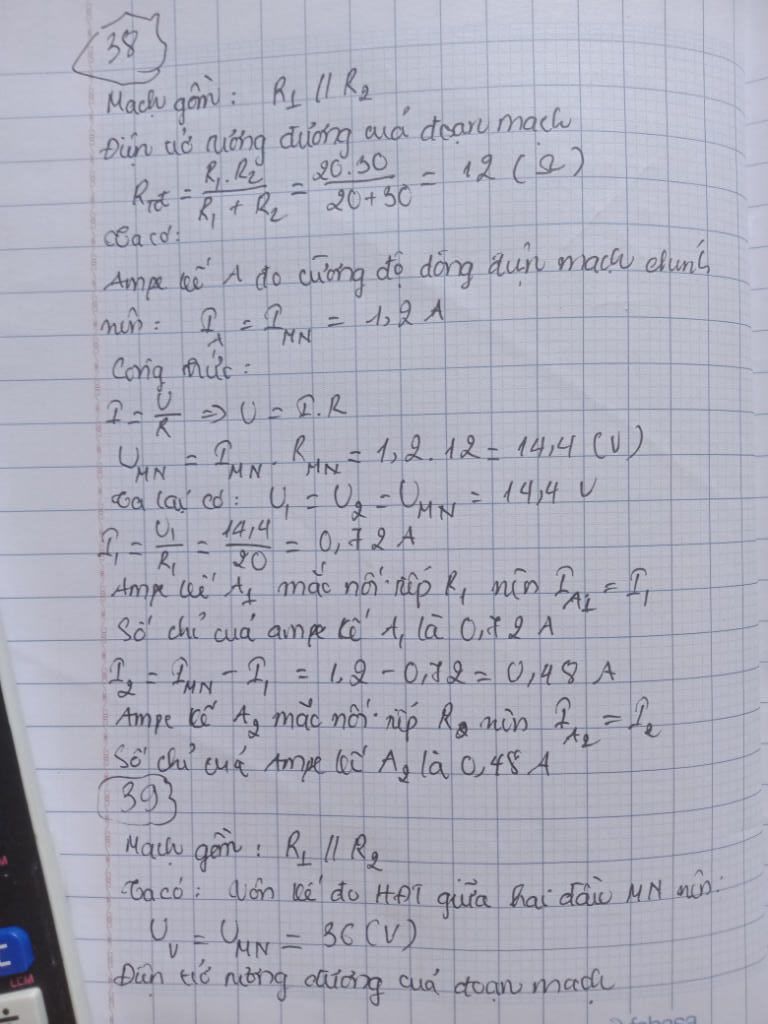 38
Mạch gồm: R₁ // R₂
Điện trở tương đương của đoạn mạch
R_tđ = (R₁.R₂)/(R₁ + R₂) = (20.30)/(20+30) = 12 (Ω)
Ta có:
Ampe kế A đo cường độ dòng điện mạch chính
nên: I_A = I_MN = 1,2 A
Công thức:
I = U/R => U = I.R
U_MN = I_MN . R_MN = 1,2.12 = 14,4 (V)
Ta lại có: U₁ = U₂ = U_MN = 14,4 V
I₁ = U₁/R₁ = 14,4/20 = 0,72 A
Ampe kế A₁ mắc nối tiếp R₁ nên I_A₁ = I₁
Số chỉ của ampe kế A₁ là 0,72 A
I₂ = I_MN - I₁ = 1,2 - 0,72 = 0,48 A
Ampe kế A₂ mắc nối tiếp R₂ nên I_A₂ = I₂
Số chỉ của Ampe kế A₂ là 0,48 A
39
Mạch gồm: R₁ // R₂
Ta có: Vôn kế đo HĐT giữa hai đầu MN nên:
U_V = U_MN = 36 (V)
Điện trở tương đương của đoạn mạch
LCM
÷
fahasa